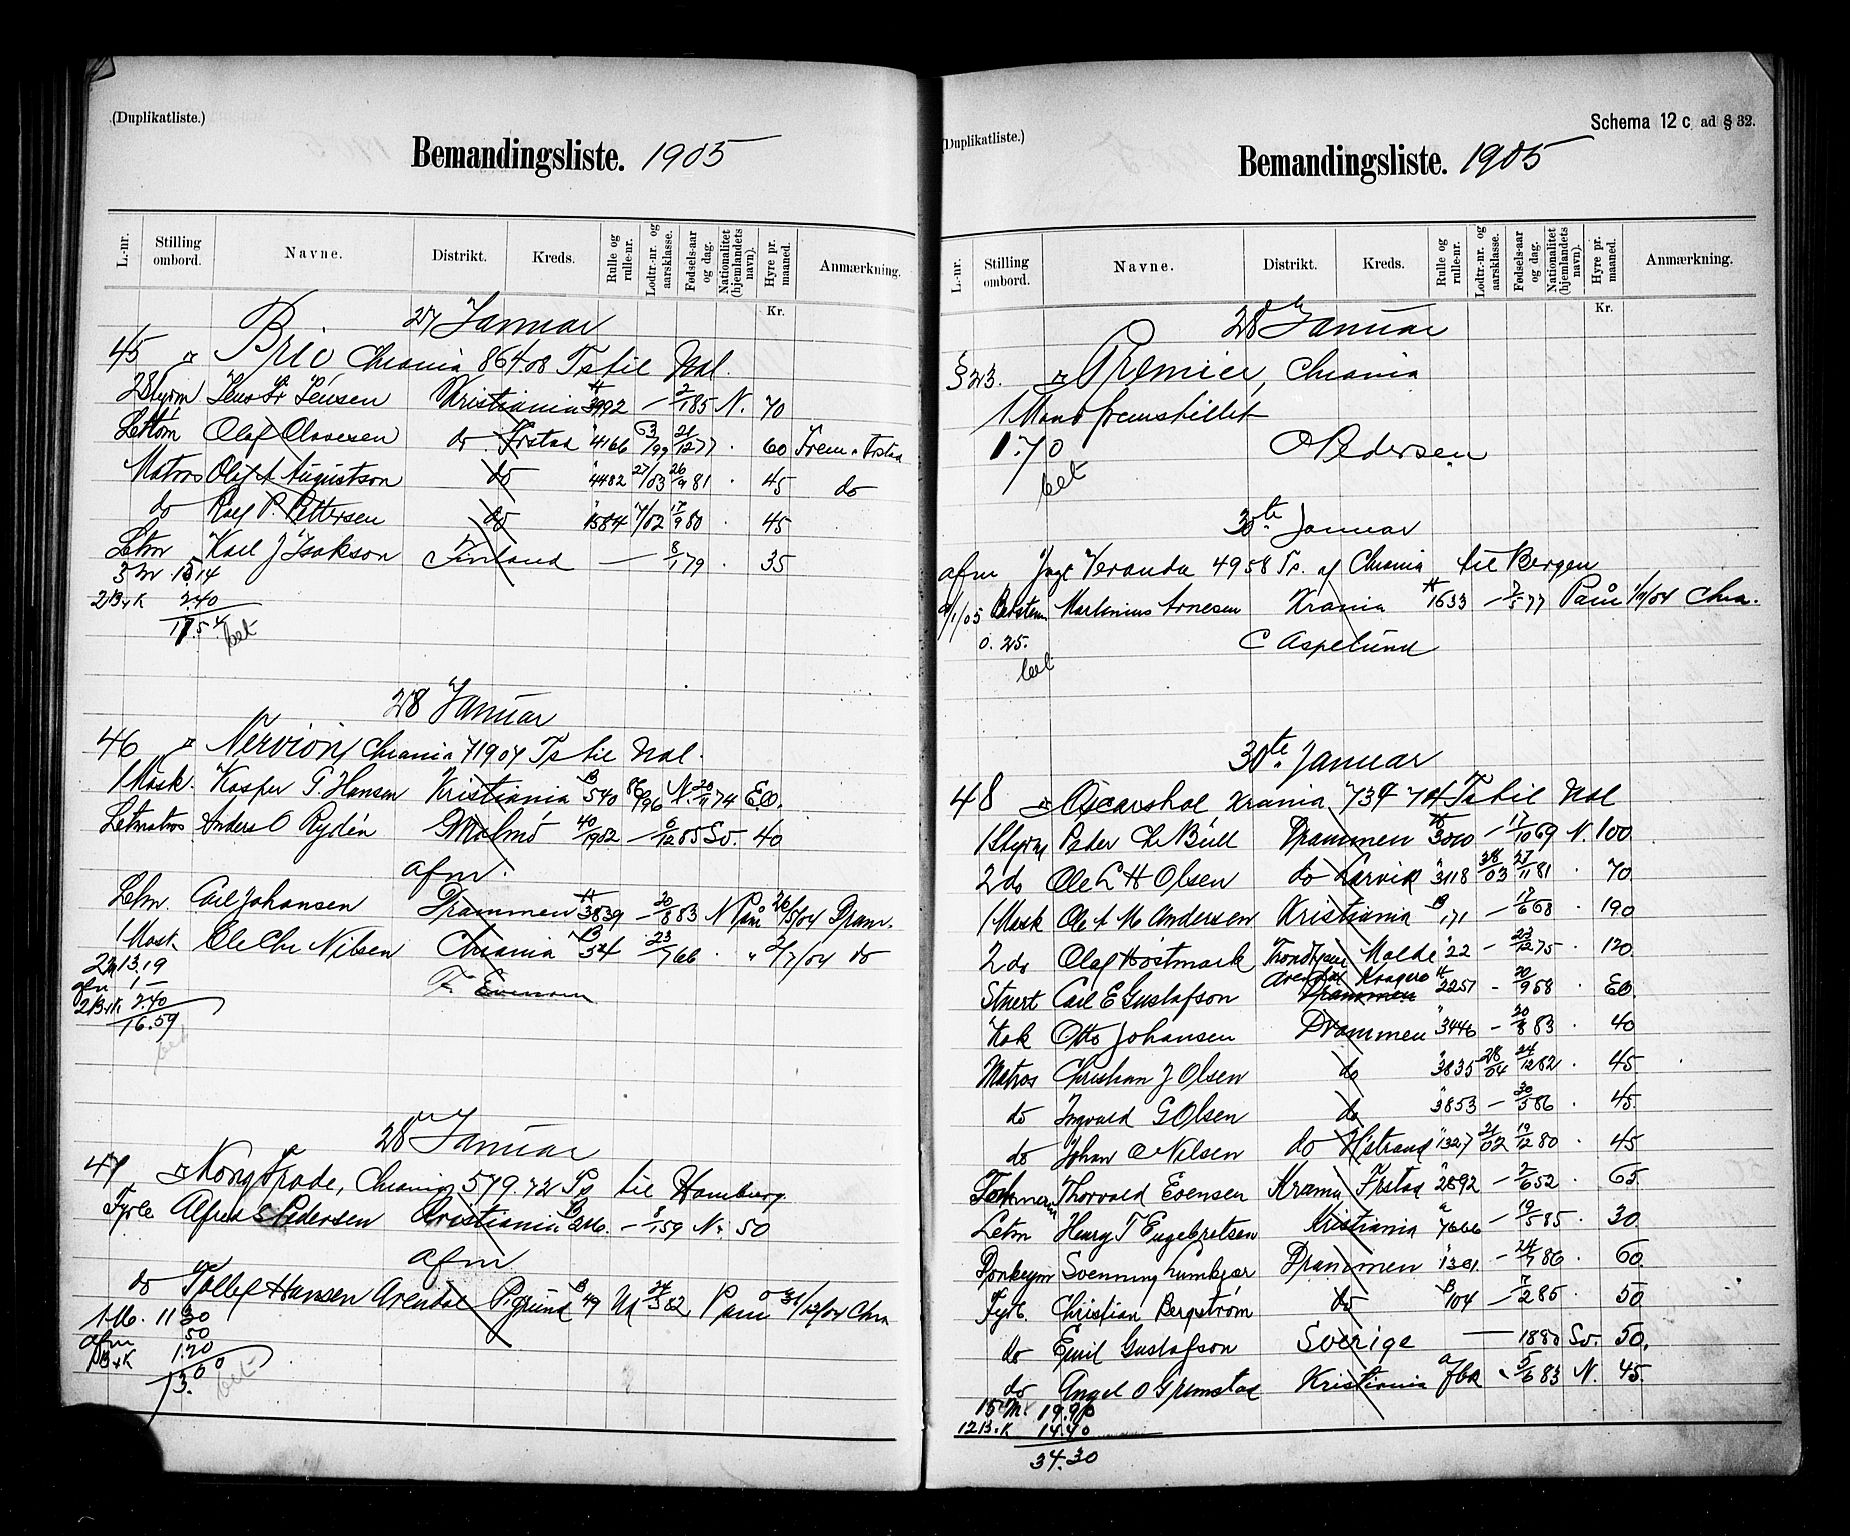 (Duplikatliste.)
Bemandingsliste. 1905
L.-nr. Stilling ombord. Navne. Distrikt. Kreds. Rulle og rulle-nr. Lodtr.-nr. og aarsklasse. Fødsels-aar og dag. Nationalitet (hjemlandets navn). Hyre pr. maaned. Anmærkning.
Kr.
27 Januar
45 Brio Chrania 864.08 Ts til Ual.
2 Styrm Jens Fr Jensen Kristiania 3992 — 2/1 85 N. 70
Letm Olaf Olavesen do Frstad 4166 63/99 21/12 77 . 60 Frem. Frstad
Matros Olaf A Augustson do 4482 27/03 26/9 81 . 45 do
do Karl P. Pettersen do 1584 7/02 17/9 80 . 45
Letm Karl J Isakson Finland — 8/1 79 . 35
5 m 15.14
2 B+K 2.40
17.54 bet
28 Januar
46 Nervion Chrania 719 04 Ts til Ual.
1 Mask. Kasper T. Hansen Kristiania B 540 86/96 N. 20/11 74 E.O.
Letmatros Anders O Rydén G Malmö 40/1902 — 6/12 85 Sv. 40
afm.
Letm. Carl Johansen Drammen A 3839 — 20/8 83 N Paam 26/5/04 Dram.
1 Mask. Ole Chr Nilsen Chrania B 54 — 23/7 66 . " 2/7/04 do
2 m 13.19 F. Evensen
afm 1 —
2 B+K 2.40
16.59
bet
28 Januar
47 Kong Frode, Chrania 579.72 Ts til Hamburg
Fyrb. Alfred S Pedersen Kristiania B 216. — 8/1 59 N. 50
afm
do Tollef Hansen Arendal P.grund B 49 N 24/3 82, Paam 31/12/04 Chra
1 M. 11 30
afm 50
1 B+K 1.20
13.00 bet
(Duplikatliste.) Schema 12 c ad § 32.
Bemandingsliste. 1905
L.-nr. Stilling ombord. Navne. Distrikt. Kreds. Rulle og rulle-nr. Lodtr.-nr. og aarsklasse. Fødsels-aar og dag. Nationalitet (hjemlandets navn). Hyre pr. maaned. Anmærkning.
Kr.
28 Januar
§ 23. Premier, Chrania
1 Mand fremstillet
1.70 O Pedersen
bet
30te Januar
afm Jagt Veranda 49 58 Ts. af Chrania til Bergen
Bedstem Martinius Arnesen Krania A 1633 — 2/5 77 Paam 1/11/04 Chra.
0. 25. C Aspelund
bet
30te Januar
48 Oscarshal Krania 739 74 Ts til Ual
1 Styrm Peder Chr Bull Drammen A 3000 — 17/10 69 N. 100
2 do Ole L H Olsen do Larvik " 3118 38/03 27/11 81 . 70
1 Mask Ole A M Andersen Kristiania B 171 — 17/6 68 . 190
2 do Olaf Hostmark Trondhjem Molde " 22 — 23/12 75 . 120
Stuert Carl E Gustafson Arendal Kragerø Drammen A 2257 — 20/9 68 . E.O.
Kok Otto Johansen Drammen " 3446 — 20/8 83 . 40
Matros Christian J Olsen do " 3835 28/04 24/12 82 . 45
do Ingvald G Olsen do " 3853 — 30/5 86 . 45
do Johan O Nilsen do H.strand " 1327 21/02 19/12 80 . 45
Tømmerm Thorvald Evensen Krania Frstad " 2892 — 2/6 52 . 65
Letm Henry T Engebretsen Kristiania " 7666 — 19/5 85 . 30
Donkeym Svenning Lumkjær Drammen " 1301 — 24/7 86 . 60
Fyrb. Christian Bergstrøm do B 104 — 7/2 85 . 50
do Emil Gustafson Sverige — 1880 Sv. 50.
do Engel O Grimstad Kristiania a fbk 5/6 83 N. 45
15 M. 19.90
12 B.K 14.40
34.30